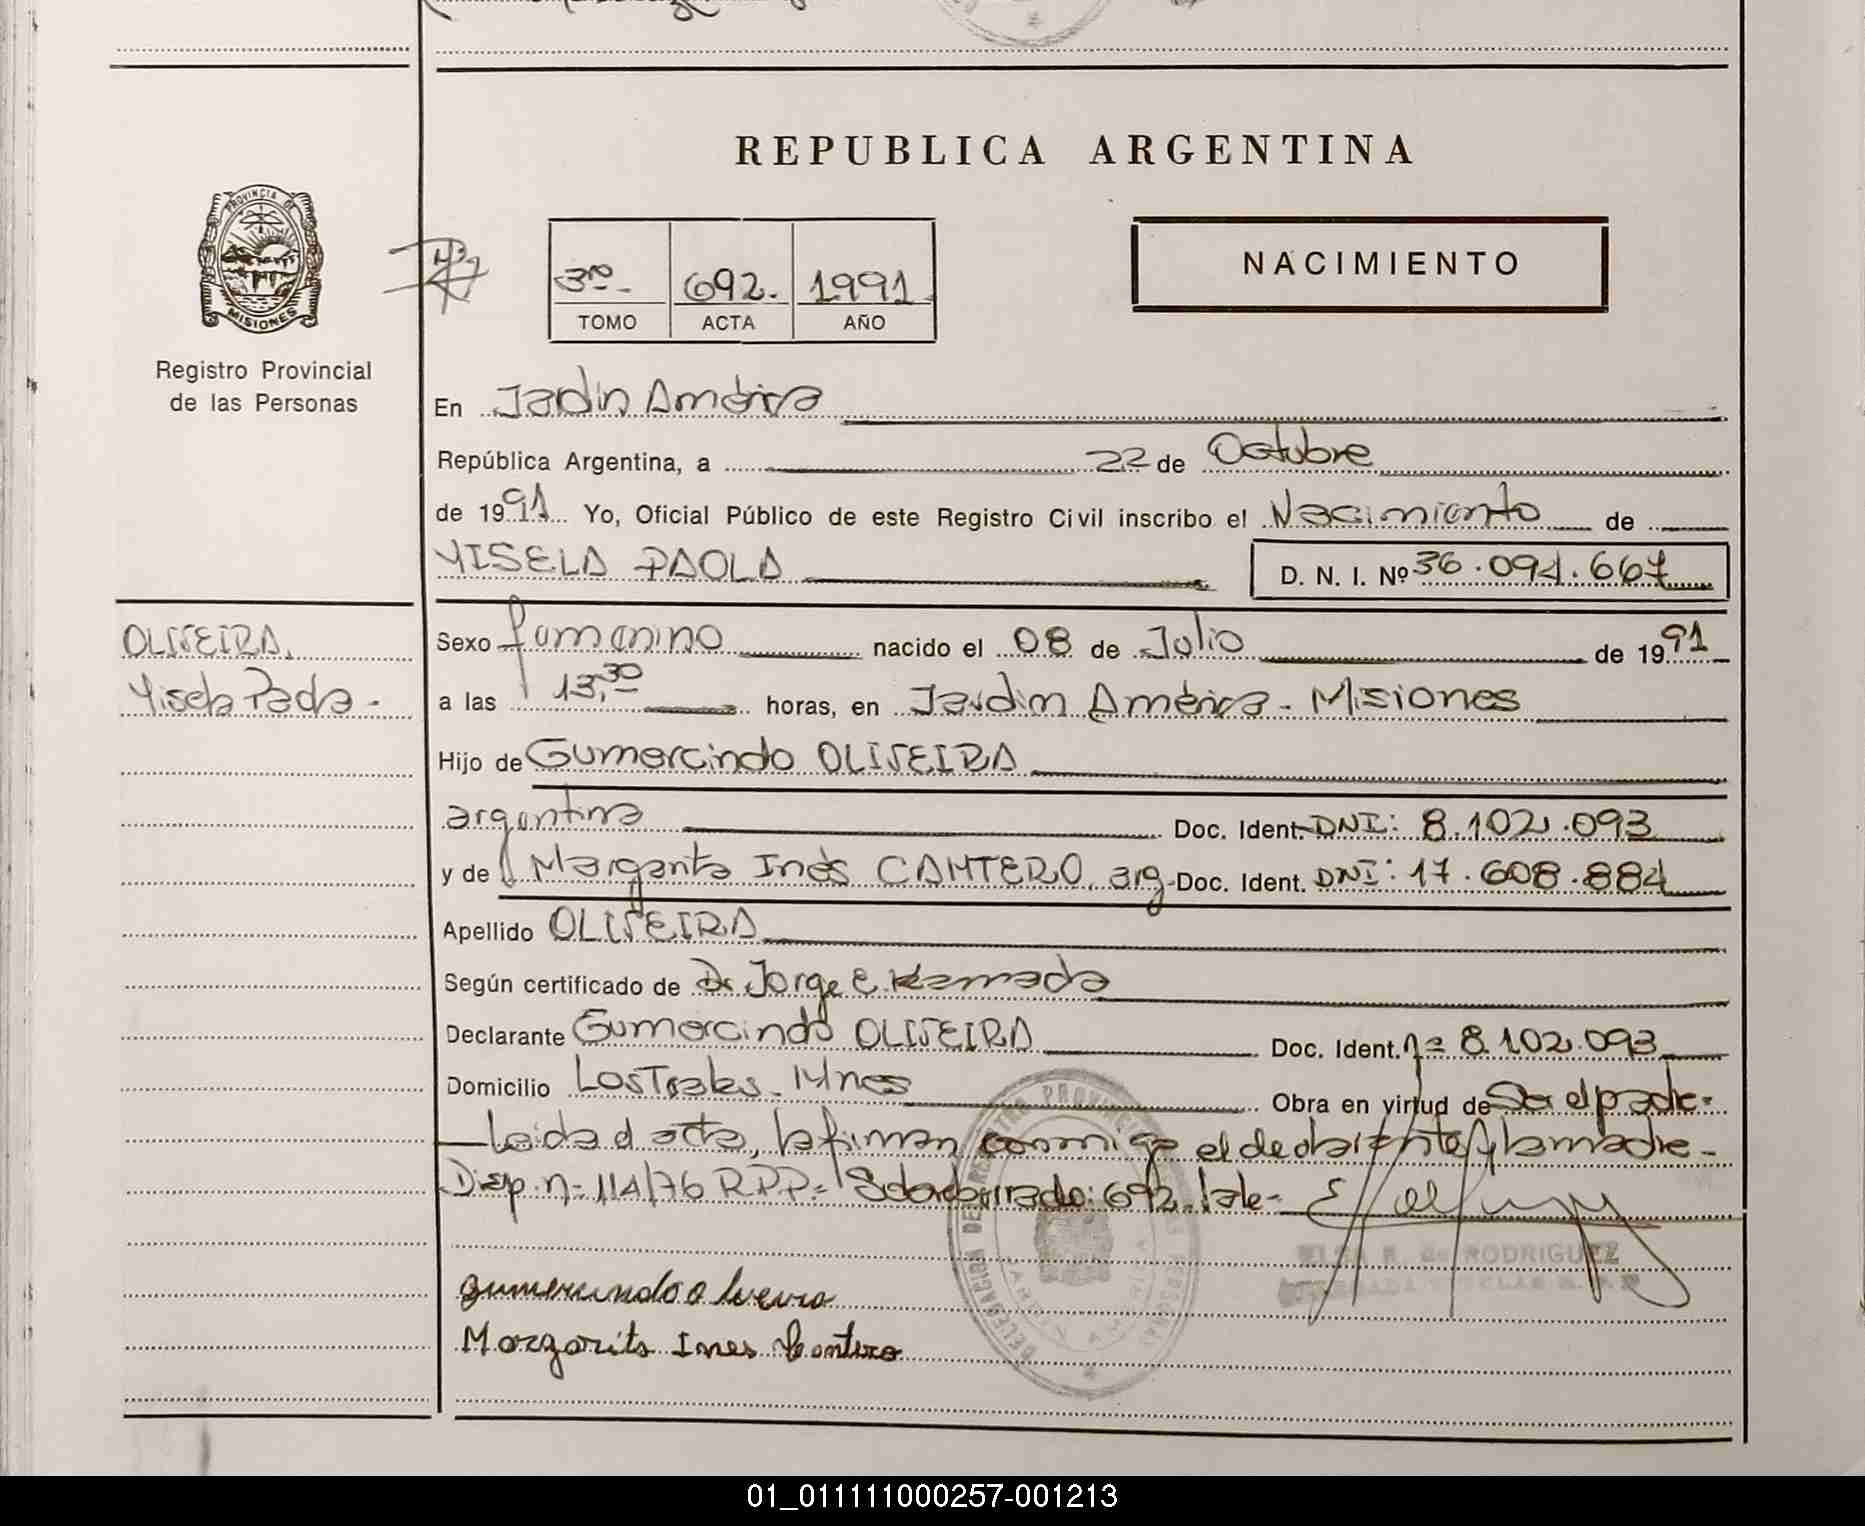 REPUBLICA ARGENTINA
PROVINCIA DE
MISIONES
Registro Provincial
de las Personas
3ro- 692. 1991
TOMO ACTA AÑO
NACIMIENTO
En Jardin América
República Argentina, a 22 de Octubre
de 1991 Yo, Oficial Público de este Registro Civil inscribo el Nacimiento de
YISELA PAOLA D. N. I. Nº 36.094.667
OLIVEIRA.
Yisela Paola -
Sexo femenino nacido el 08 de Julio de 1991
a las 13,30 horas, en Jardin América - Misiones
Hijo de Gumercindo OLIVEIRA
argentina Doc. Ident. DNI: 8.102.093
y de Margarita Inés CANTERO, arg. Doc. Ident. DNI: 17.608.884
Apellido OLIVEIRA
Según certificado de Dr Jorge E.
Declarante Gumercindo OLIVEIRA Doc. Ident. nº 8.102.093
Domicilio Los Teales - Mnes Obra en virtud de Ser el padre-
Leida el acta, la firman conmigo el declarante y la madre-
Disp. nº 114/76 R.P.P.= Sobreborrado: 692. Vale-
ELSA R. de RODRIGUEZ
gumercindo oliveira
Margarita Ines Cantero
01_011111000257-001213